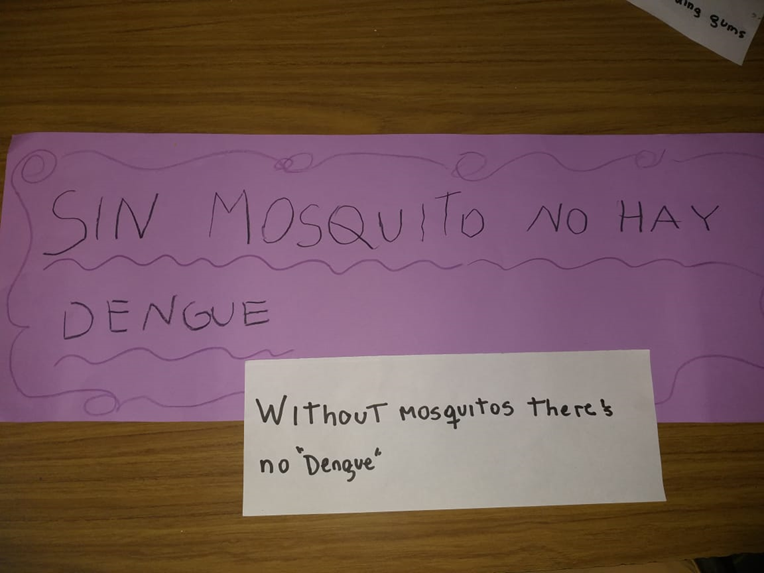 ding gums
SIN MOSQUITO NO HAY
DENGUE
WITHOUT MOSQUITOS THERE'S
no "Dengue"